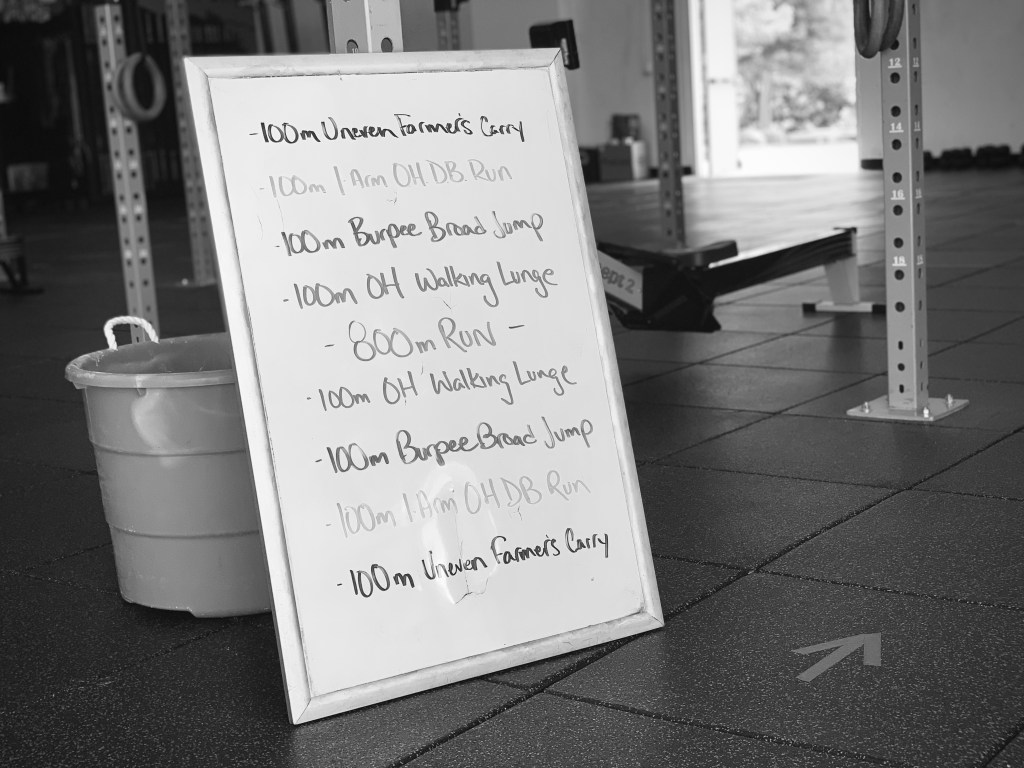 - 100m Uneven Farmer's Carry
- 100m 1 Arm OH D.B. Run
- 100m Burpee Broad Jump
- 100m OH Walking Lunge
- 800m RUN -
- 100m OH Walking Lunge
- 100m Burpee Broad Jump
- 100m 1 Arm OH DB Run
- 100m Uneven Farmer's Carry
12
14
16
18